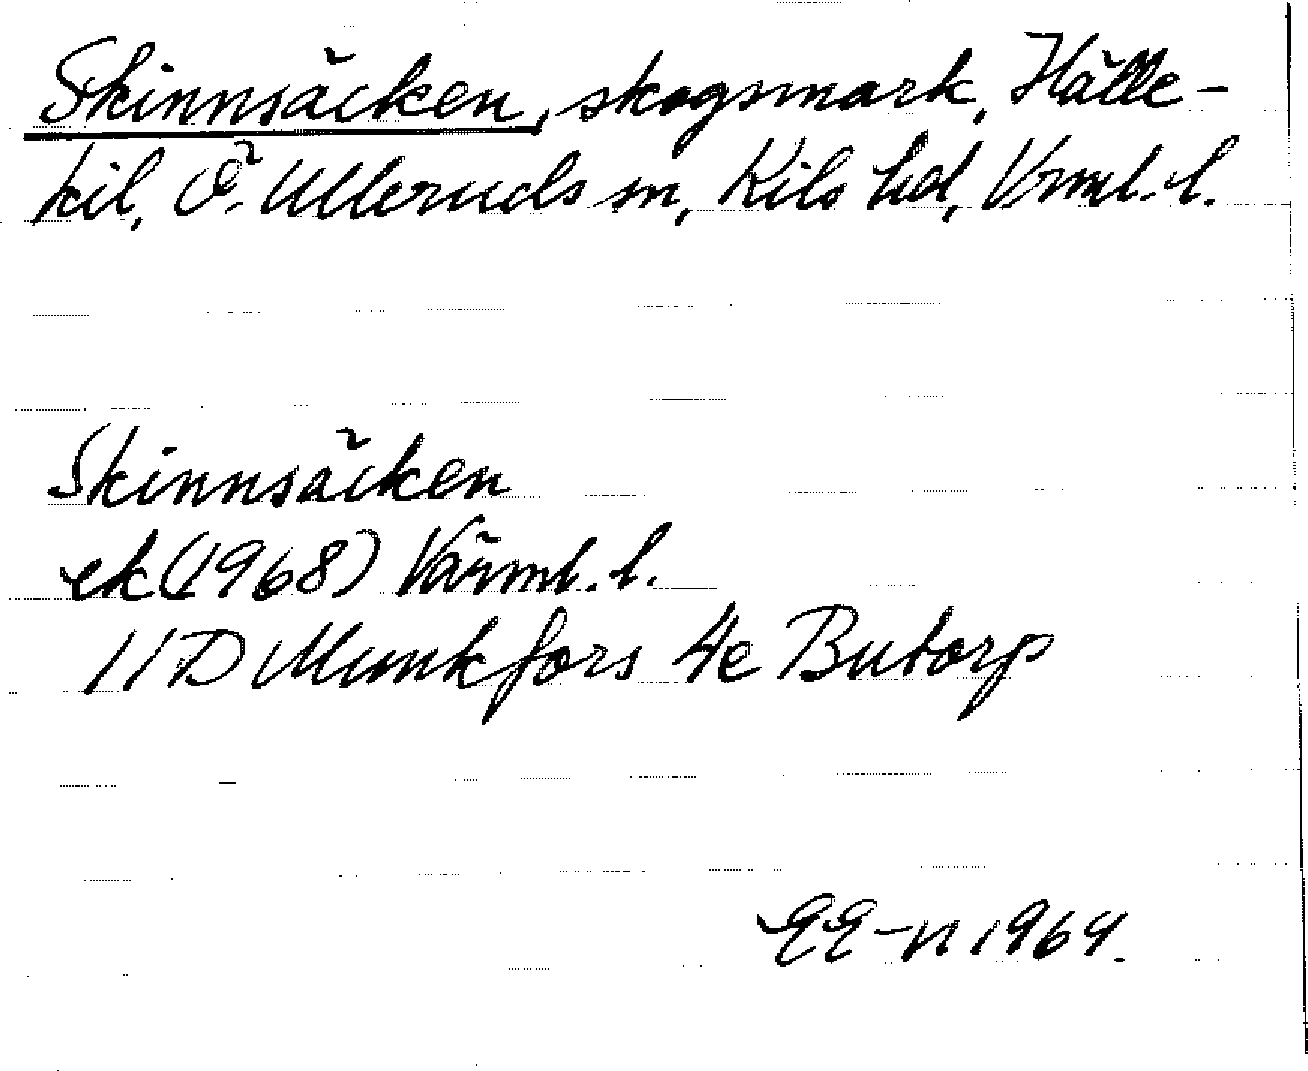 Skinnsäcken, skogsmark, Hälle-
kil, Ö. Ulleruds sn, Kils hd, Vrml. l.
Skinnsäcken
ek (1968) Värml. l.
11D Munkfors 4c Butorp
EE-n 1964.